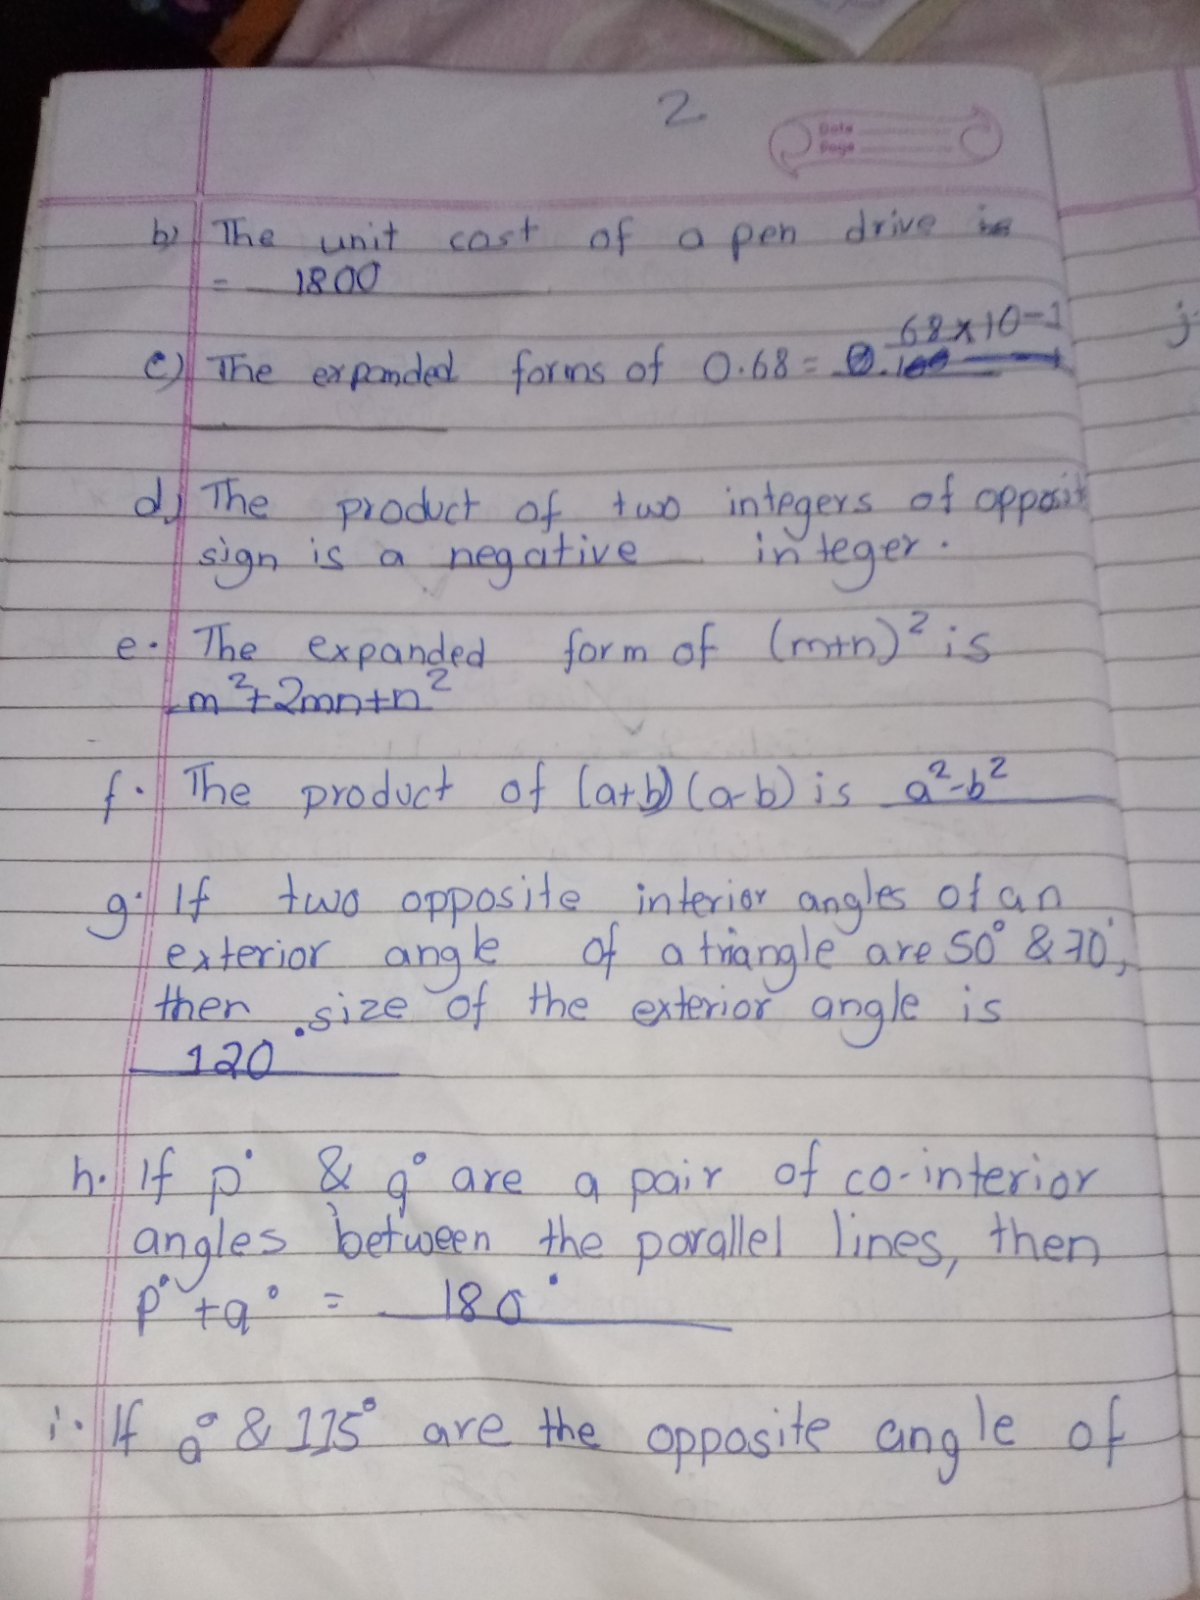 2
Date
Page
b) The unit cost of a pen drive is
= 1800
68x10-1
c) The expanded forms of 0.68 =
d) The product of two integers of opposit
sign is a negative integer.
e. The expanded form of (m+n)² is
m²+2mn+n²
f. The product of (a+b)(a-b) is a²-b²
g. If two opposite interior angles of an
exterior angle of a triangle are 50° & 70°,
then size of the exterior angle is
120°
h. If p° & q° are a pair of co-interior
angles between the parallel lines, then
p°+q° = 180°
i. If a° & 115° are the opposite angle of
j.